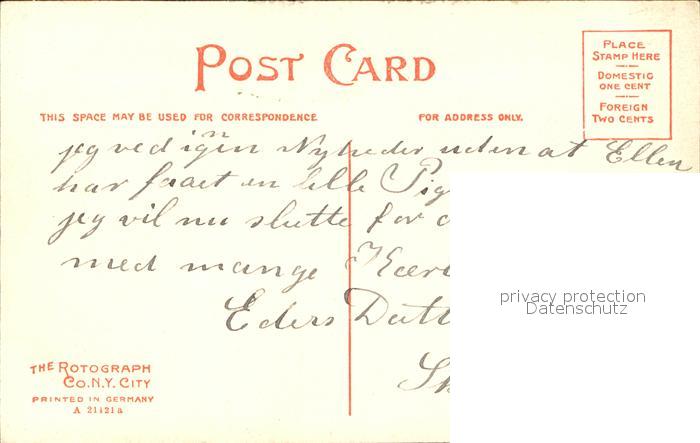 POST CARD
PLACE
STAMP HERE
DOMESTIC
ONE CENT
FOREIGN
TWO CENTS
THIS SPACE MAY BE USED FOR CORRESPONDENCE
FOR ADDRESS ONLY.
jeg ved igen Nyheder uden at Ellen
har faaet en lille Pig
jeg vil nu slutte for
med mange Kær
Eders Datt
privacy protection
Datenschutz
THE ROTOGRAPH
CO. N.Y. CITY
PRINTED IN GERMANY
A 21121a